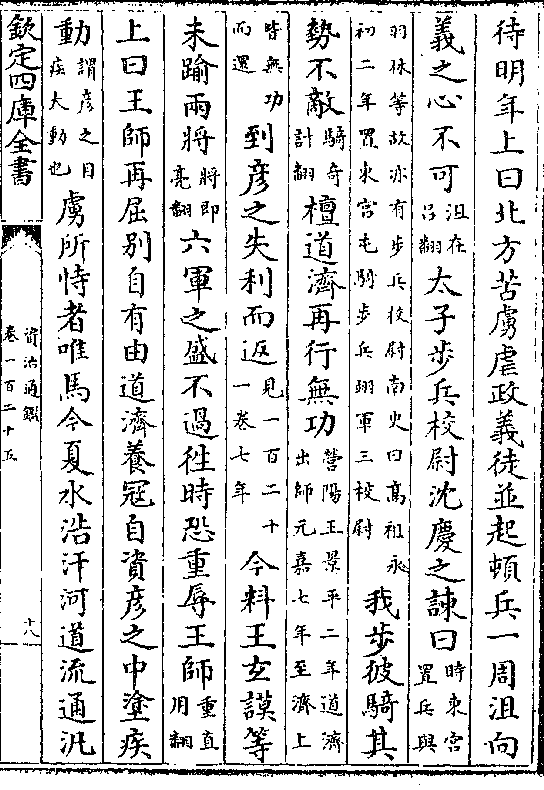 待明年上曰北方苦虜虐政義徒並起頓兵一周沮向
義之心不可沮在呂翻太子步兵校尉沈慶之諫曰時東宫置兵與
羽林等故亦有步兵校尉南史曰高祖永初二年置東宫屯騎步兵翊軍三校尉我步彼騎其
勢不敵騎奇計翻檀道濟再行無功營陽王景平二年道濟出師元嘉七年至濟上
皆無功而還到彥之失利而返見一百二十一卷七年今料王玄謨等
未踰兩將將即亮翻六軍之盛不過徃時恐重辱王師重直用翻
上曰王師再屈别自有由道濟養冦自資彥之中塗疾
動謂彥之目疾大動也虜所恃者唯馬今夏水浩汗河道流通汎
欽定四庫全書
資治通鑑
卷一百二十五
十八